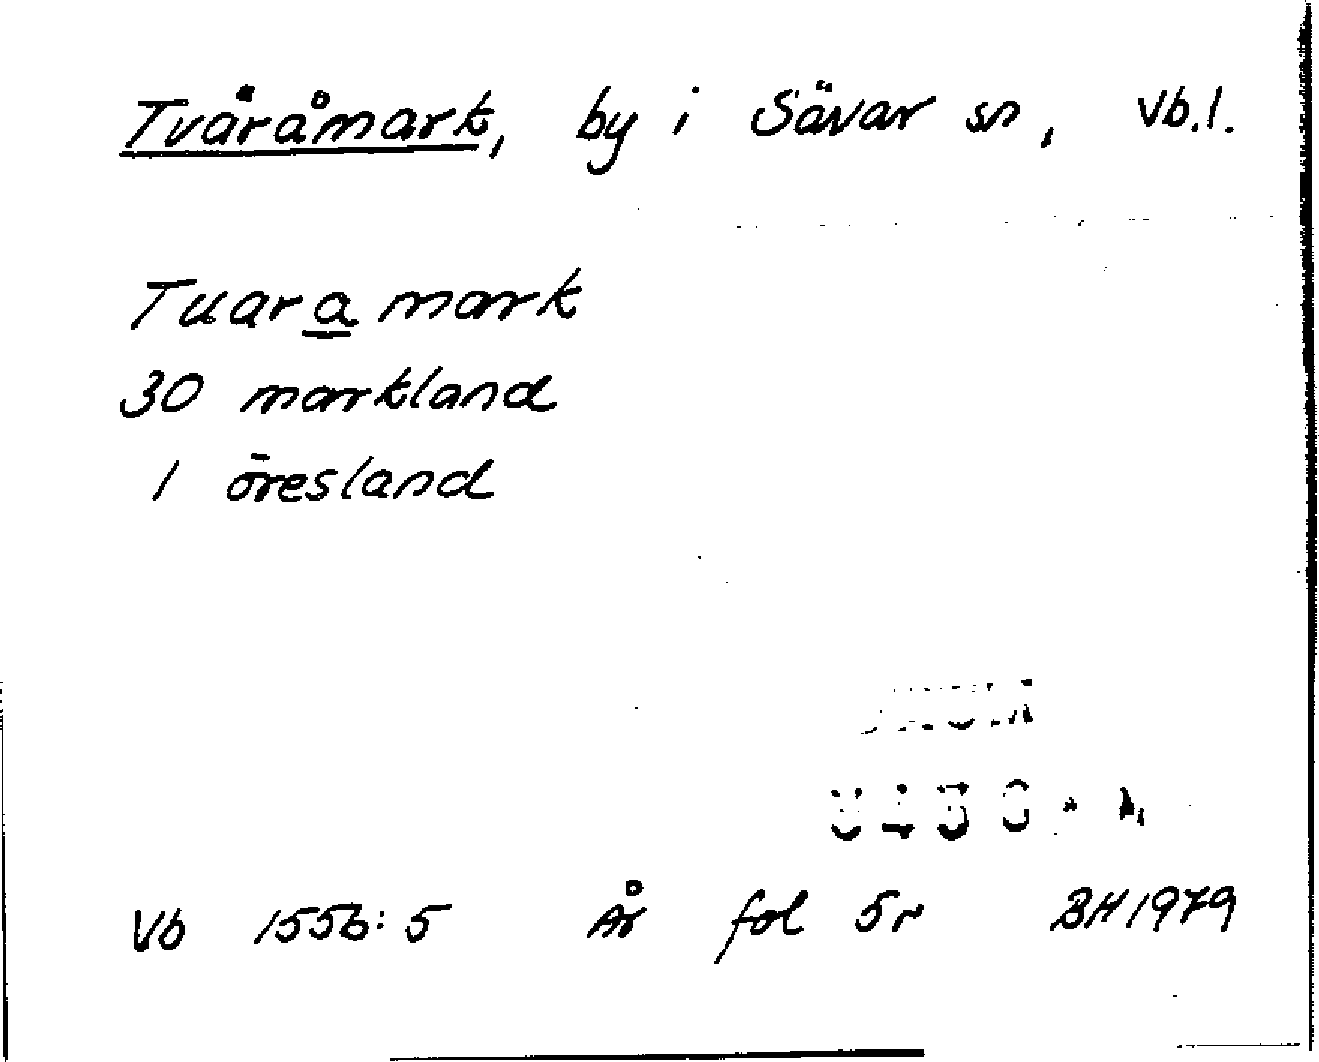 Tväråmark, by i Sävar sn, Vb.l.
Tuar a mark
30 markland
1 öresland
Vb 1556:5 År fol 5r BH 1979